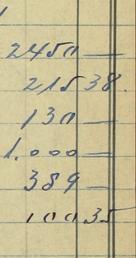 2450 —
215 38.
130 —
1.000 —
389 —
100 35